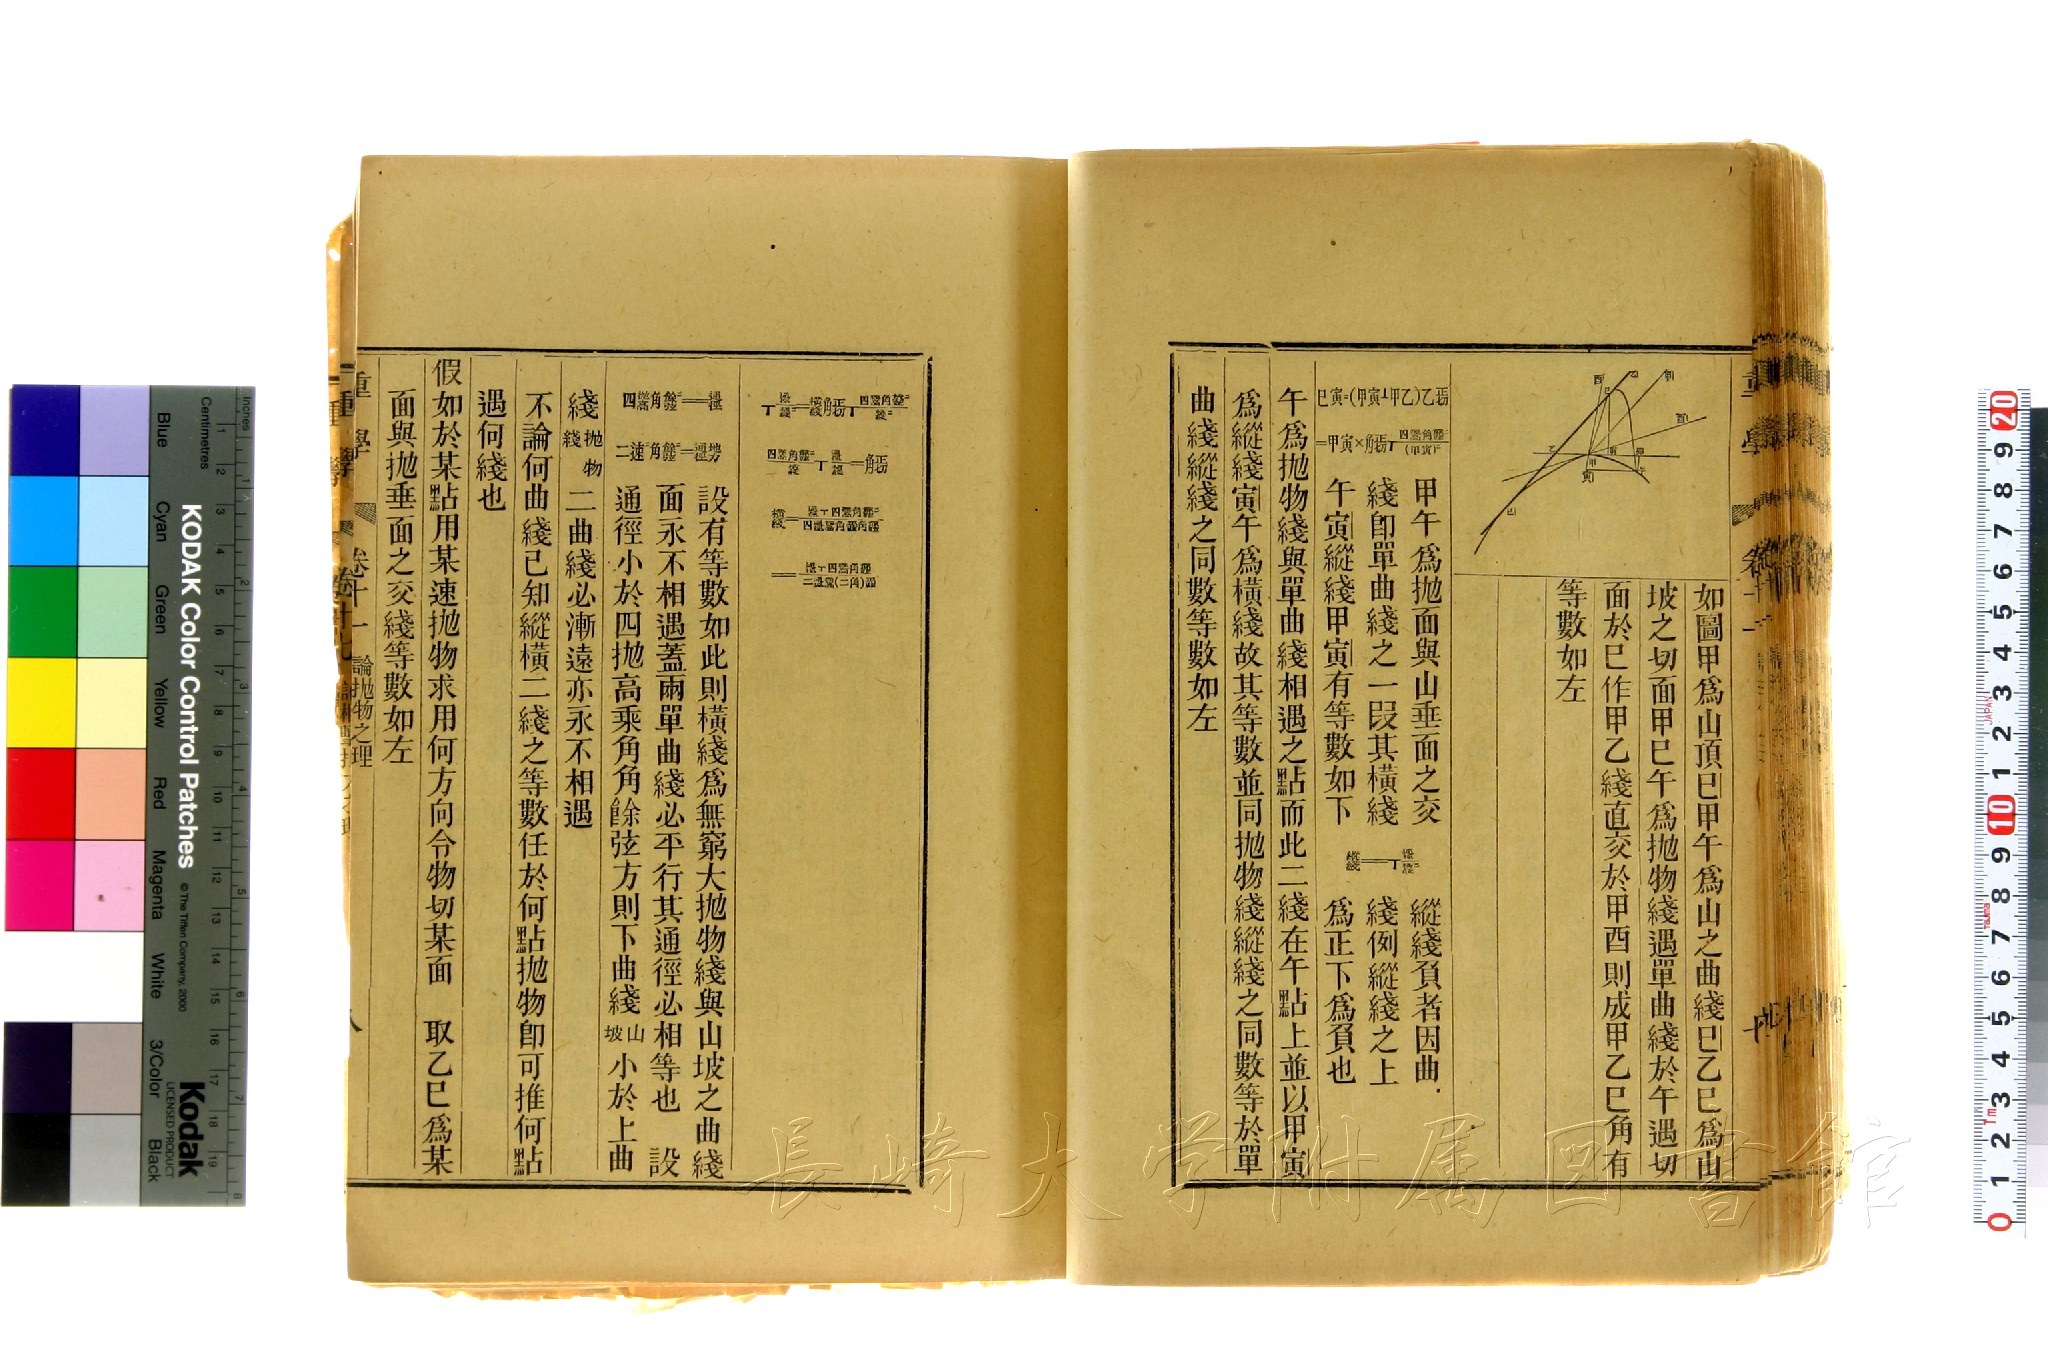 如圖甲爲山頂巳甲午爲山之曲綫巳乙巳爲山
坡之切面甲巳午爲拋物綫遇單曲綫於午遇切
面於巳作甲乙綫直交於甲酉則成甲乙巳角有
等數如左
甲午爲拋面與山垂面之交
綫卽單曲綫之一段其橫綫
午寅縱綫甲寅有等數如下
縱綫負者因曲
綫例縱綫之上
爲正下爲負也
午爲拋物綫與單曲綫相遇之點而此二綫在午點上並以甲寅
爲縱綫寅午爲橫綫故其等數並同拋物綫縱綫之同數等於單
曲綫縱綫之同數等數如左
設有等數如此則橫綫爲無窮大拋物綫與山坡之曲綫
面永不相遇蓋兩單曲綫必平行其通徑必相等也 設
通徑小於四拋高乘角角餘弦方則下曲綫山坡小於上曲
綫拋物綫二曲綫必漸遠亦永不相遇
不論何曲綫已知縱橫二綫之等數任於何點拋物卽可推何點
遇何綫也
假如於某點用某速拋物求用何方向令物切某面 取乙巳爲某
面與拋垂面之交綫等數如左
重學 卷十一 論拋物之理
八
KODAK Color Control Patches
©The Tiffen Company, 2000
Kodak
LICENSED PRODUCT
Blue Cyan Green Yellow Red Magenta White 3/Color Black
Centimetres
Inches
長崎大学附属図書館